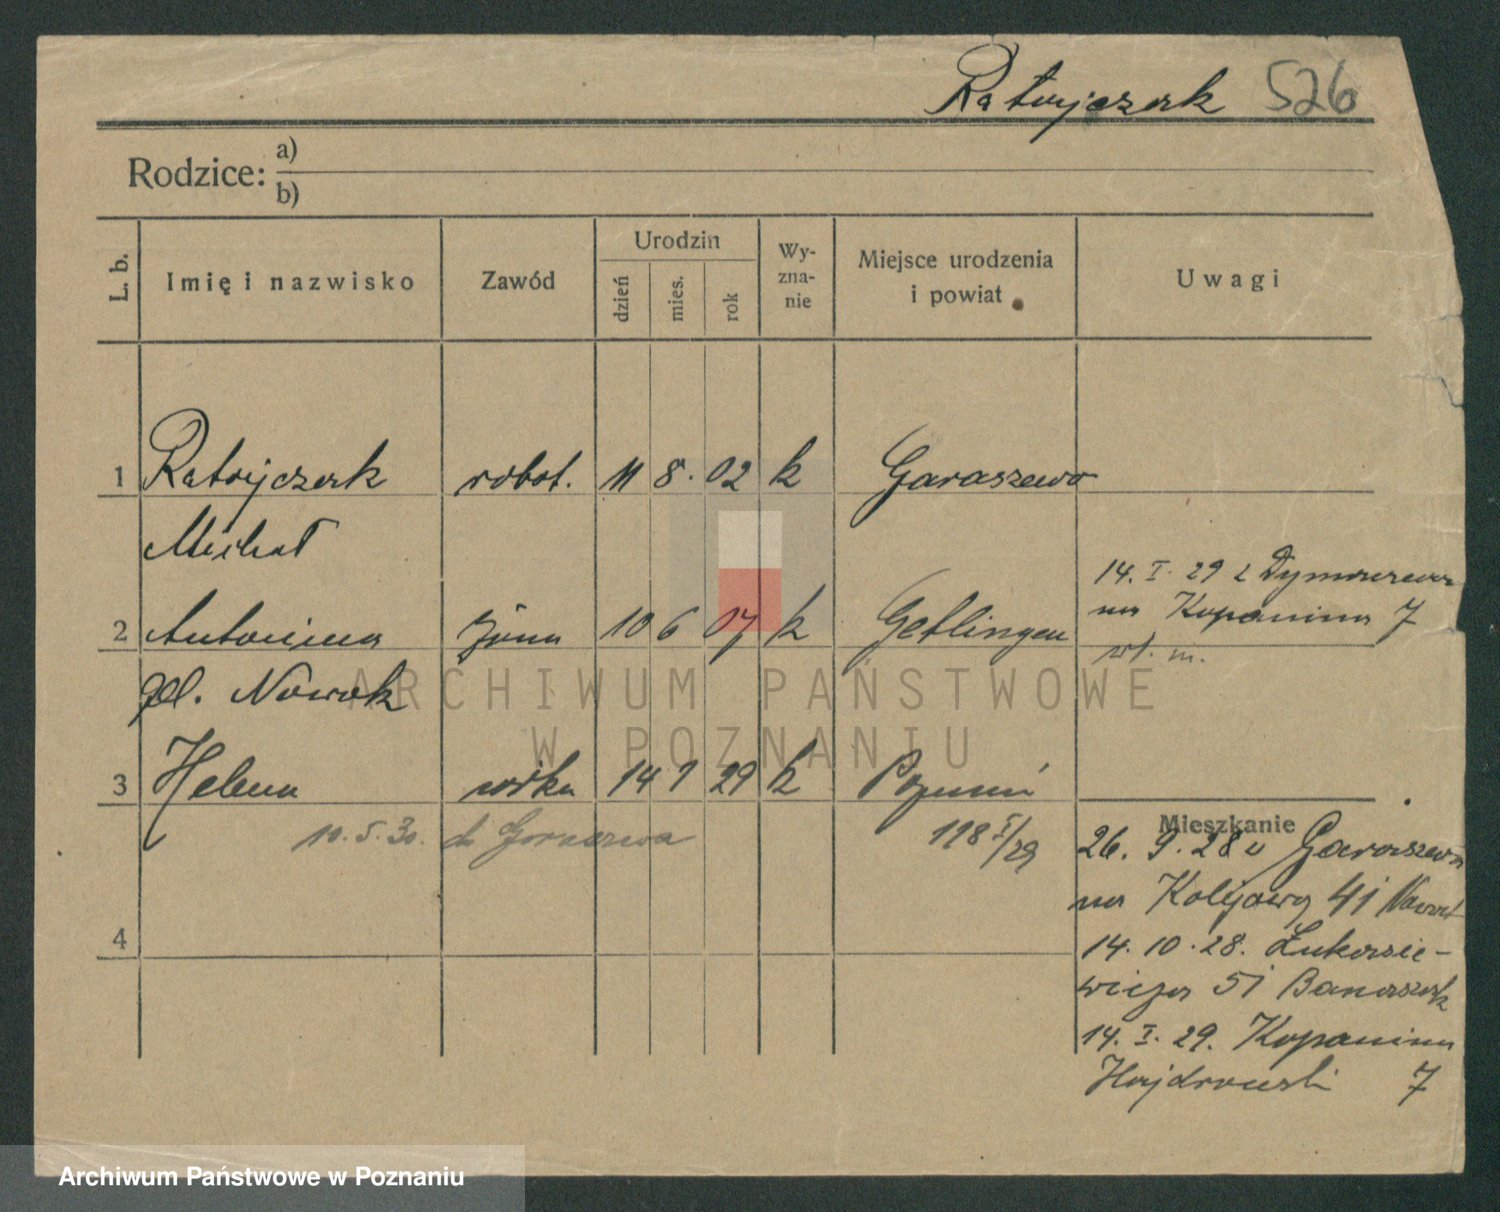 Ratajczak 526
Rodzice: a)
b)
L. b. Imię i nazwisko Zawód Urodzin dzień mies. rok Wy-zna-nie Miejsce urodzenia i powiat Uwagi
1 Ratajczak robot. 11 8. 02 k Garaszewo
Michał
14. I. 29 z
na Kopanina 7
2 Antonina żona 10 6 07 k Getlingen
gb. Nowak
ARCHIWUM PAŃSTWOWE
W POZNANIU
3 Helena córka 14 1 29 k Poznań
118 I/29
10. 5. 30. do
Mieszkanie
26. 9. 28 z Garaszewa
na 41
4
14. 10. 28. Łukasze-
wicza 51 Banaszak
14. I. 29. Kopanina
Hajdrowski 7
Archiwum Państwowe w Poznaniu